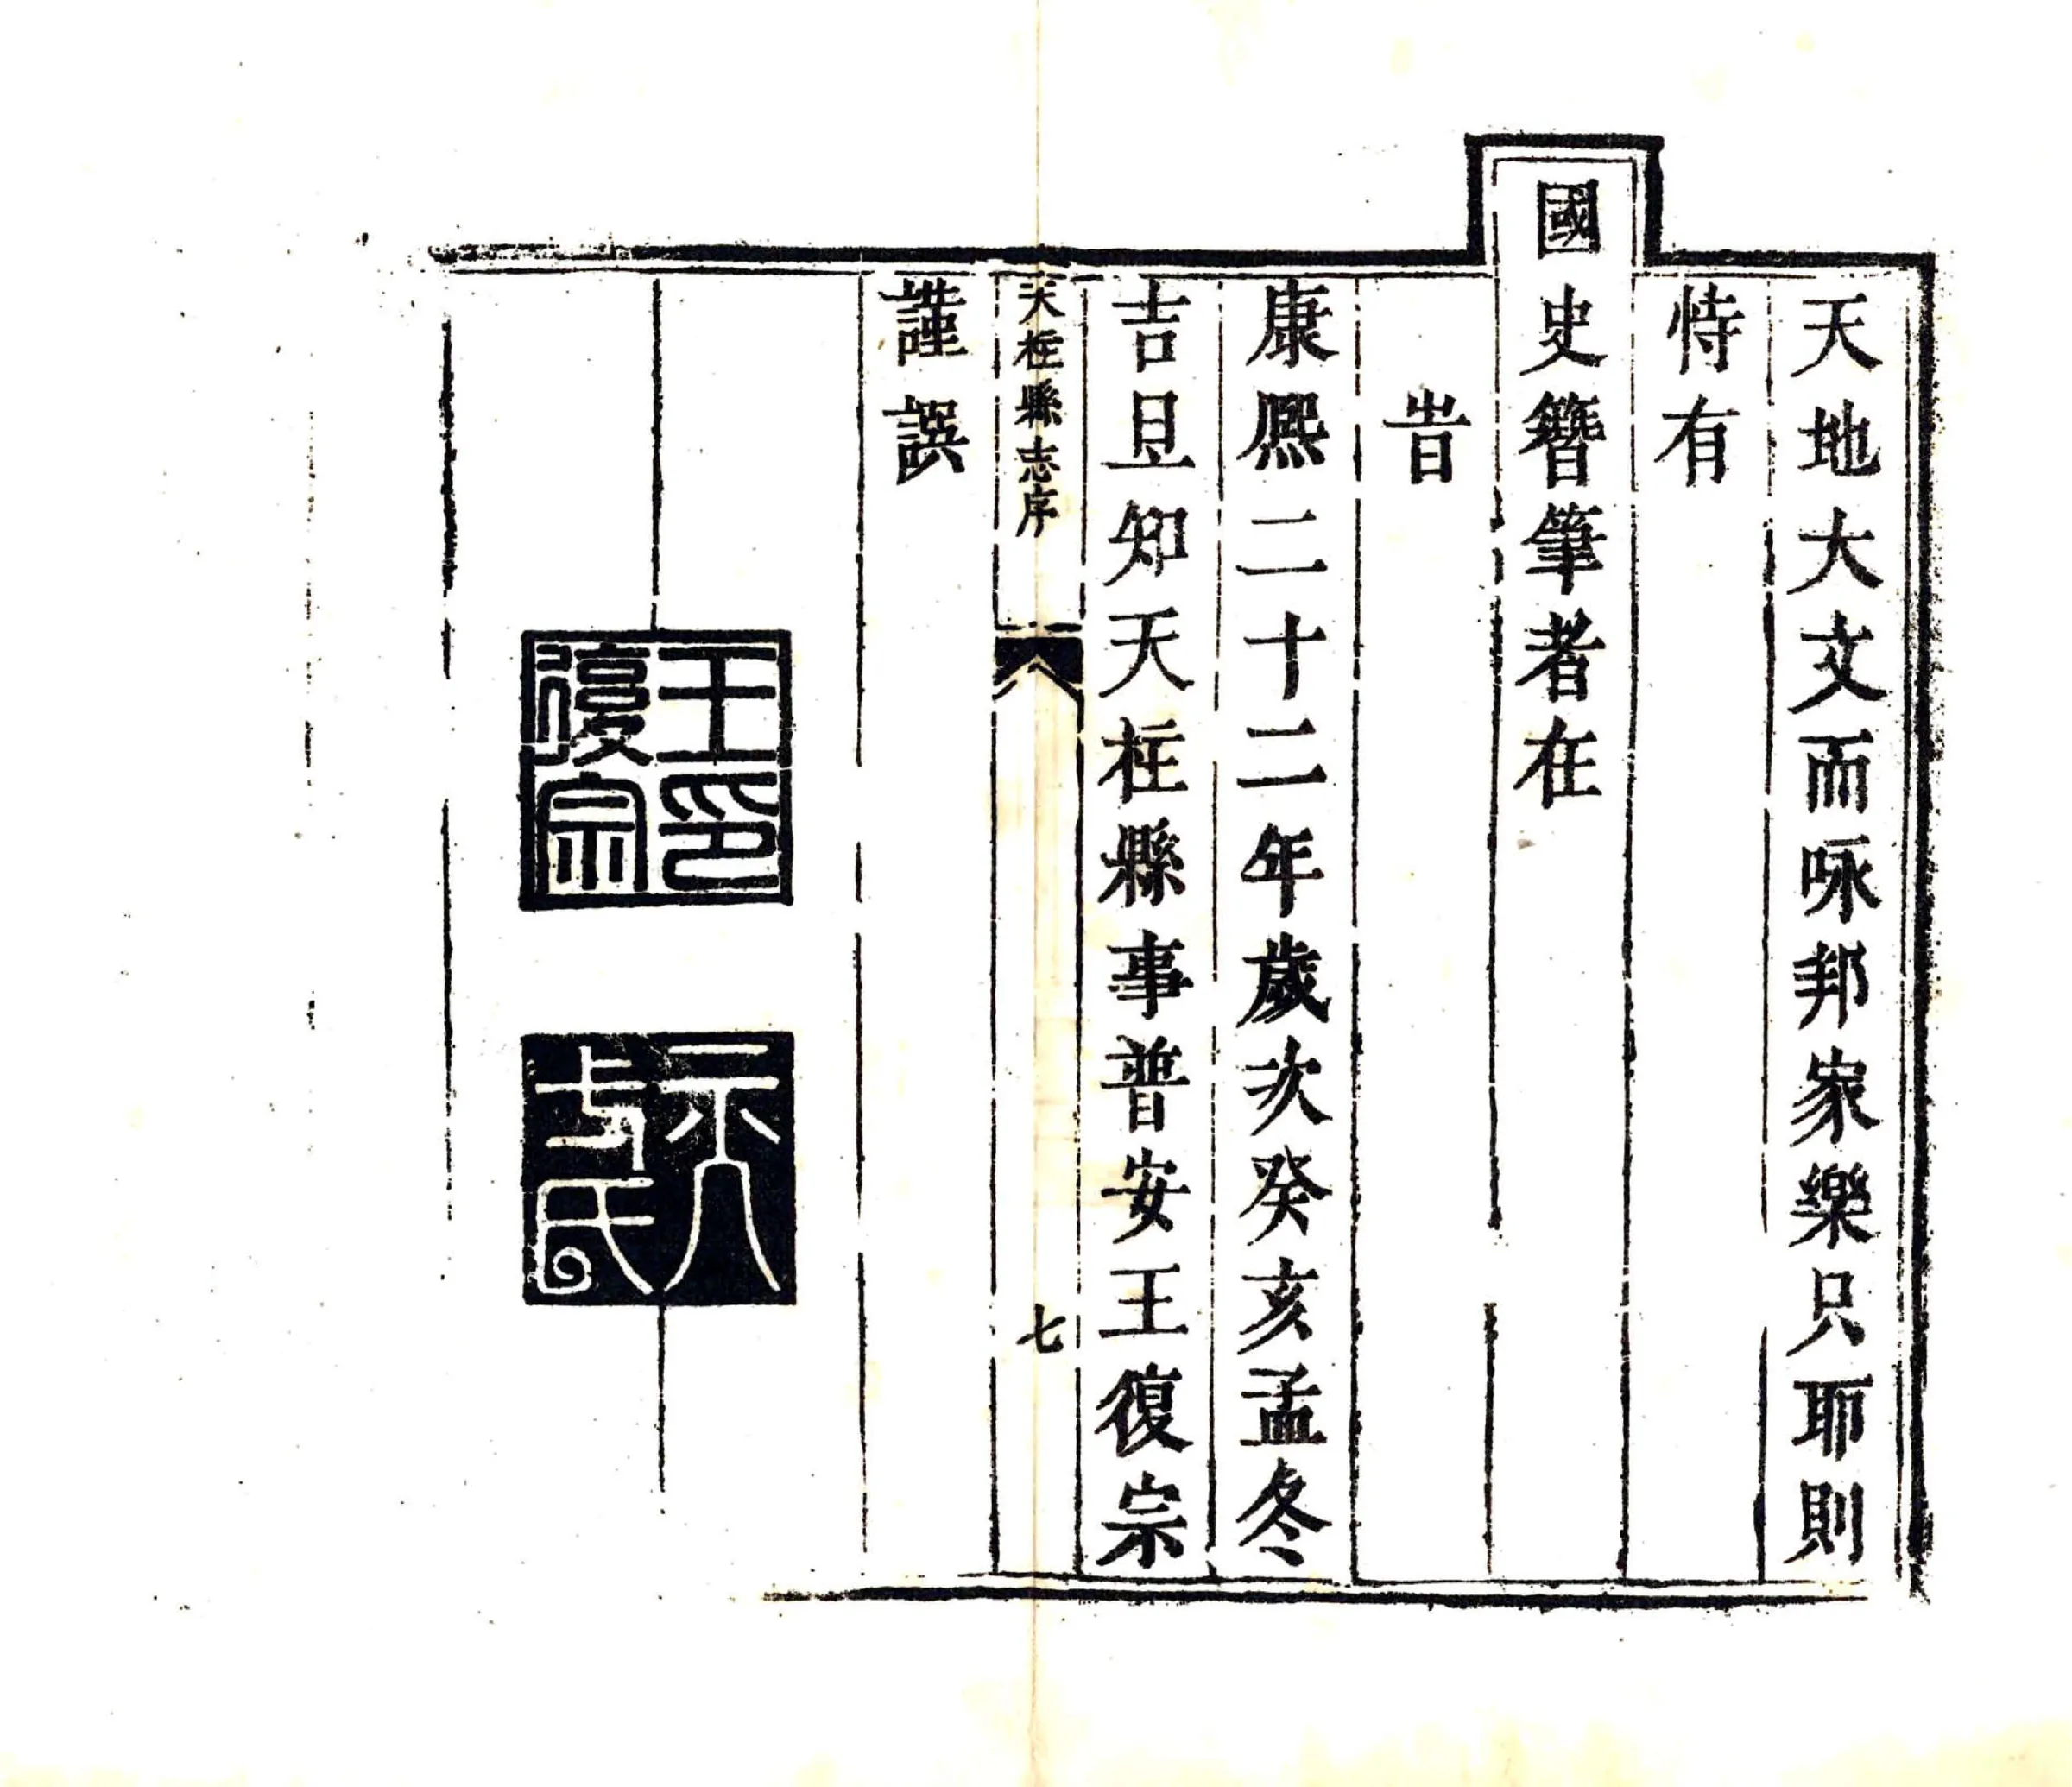 天地大文而咏邦家樂只耶則
恃有
國史簪筆者在
旹
康熈二十二年歲次癸亥孟冬
吉旦知天柱縣事普安王復宗
天柱縣志序
七
謹譔
王印復宗